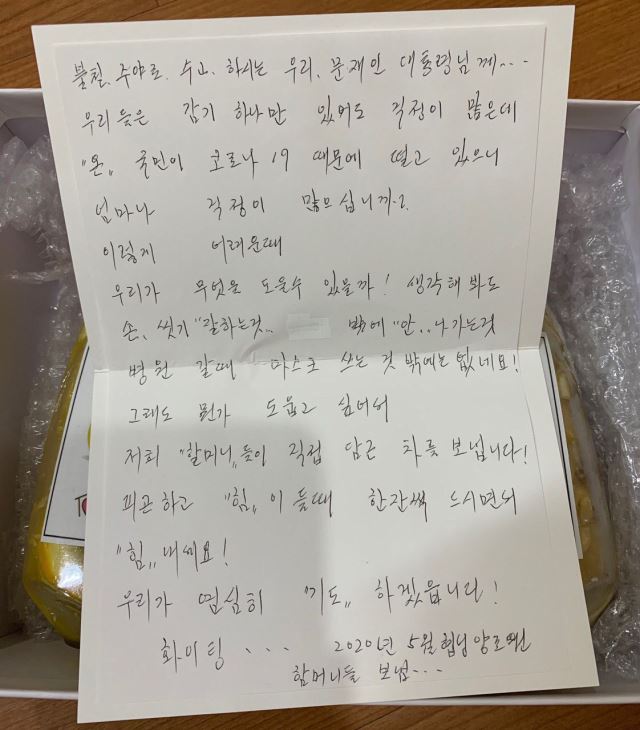 불철.주야로. 수고. 하시는 우리. 문재인 대통령님께...
우리들은 감기 하나만 있어도 걱정이 많은데
"온" 국민이 코로나 19 때문에 떨고 있으니
얼마나 걱정이 많으십니까?
이렇게 어려운때
우리가 무엇을 도울수 있을까! 생각해 봐도
손. 씻기 "잘하는것... 밖에 "안.. 나가는것
병원 갈때 마스크 쓰는 것 밖에는 없네요!
그래도 뭔가 돕고 싶어서
저희 "할머니" 들이 직접 담근 차를 보냅니다!
피곤하고 "힘" 이 들때 한잔씩 드시면서
"힘" 내세요!
우리가 열심히 "기도" 하겠읍니다!
화이팅 ... 2020년 5월 양로원
할머니들 보냄...